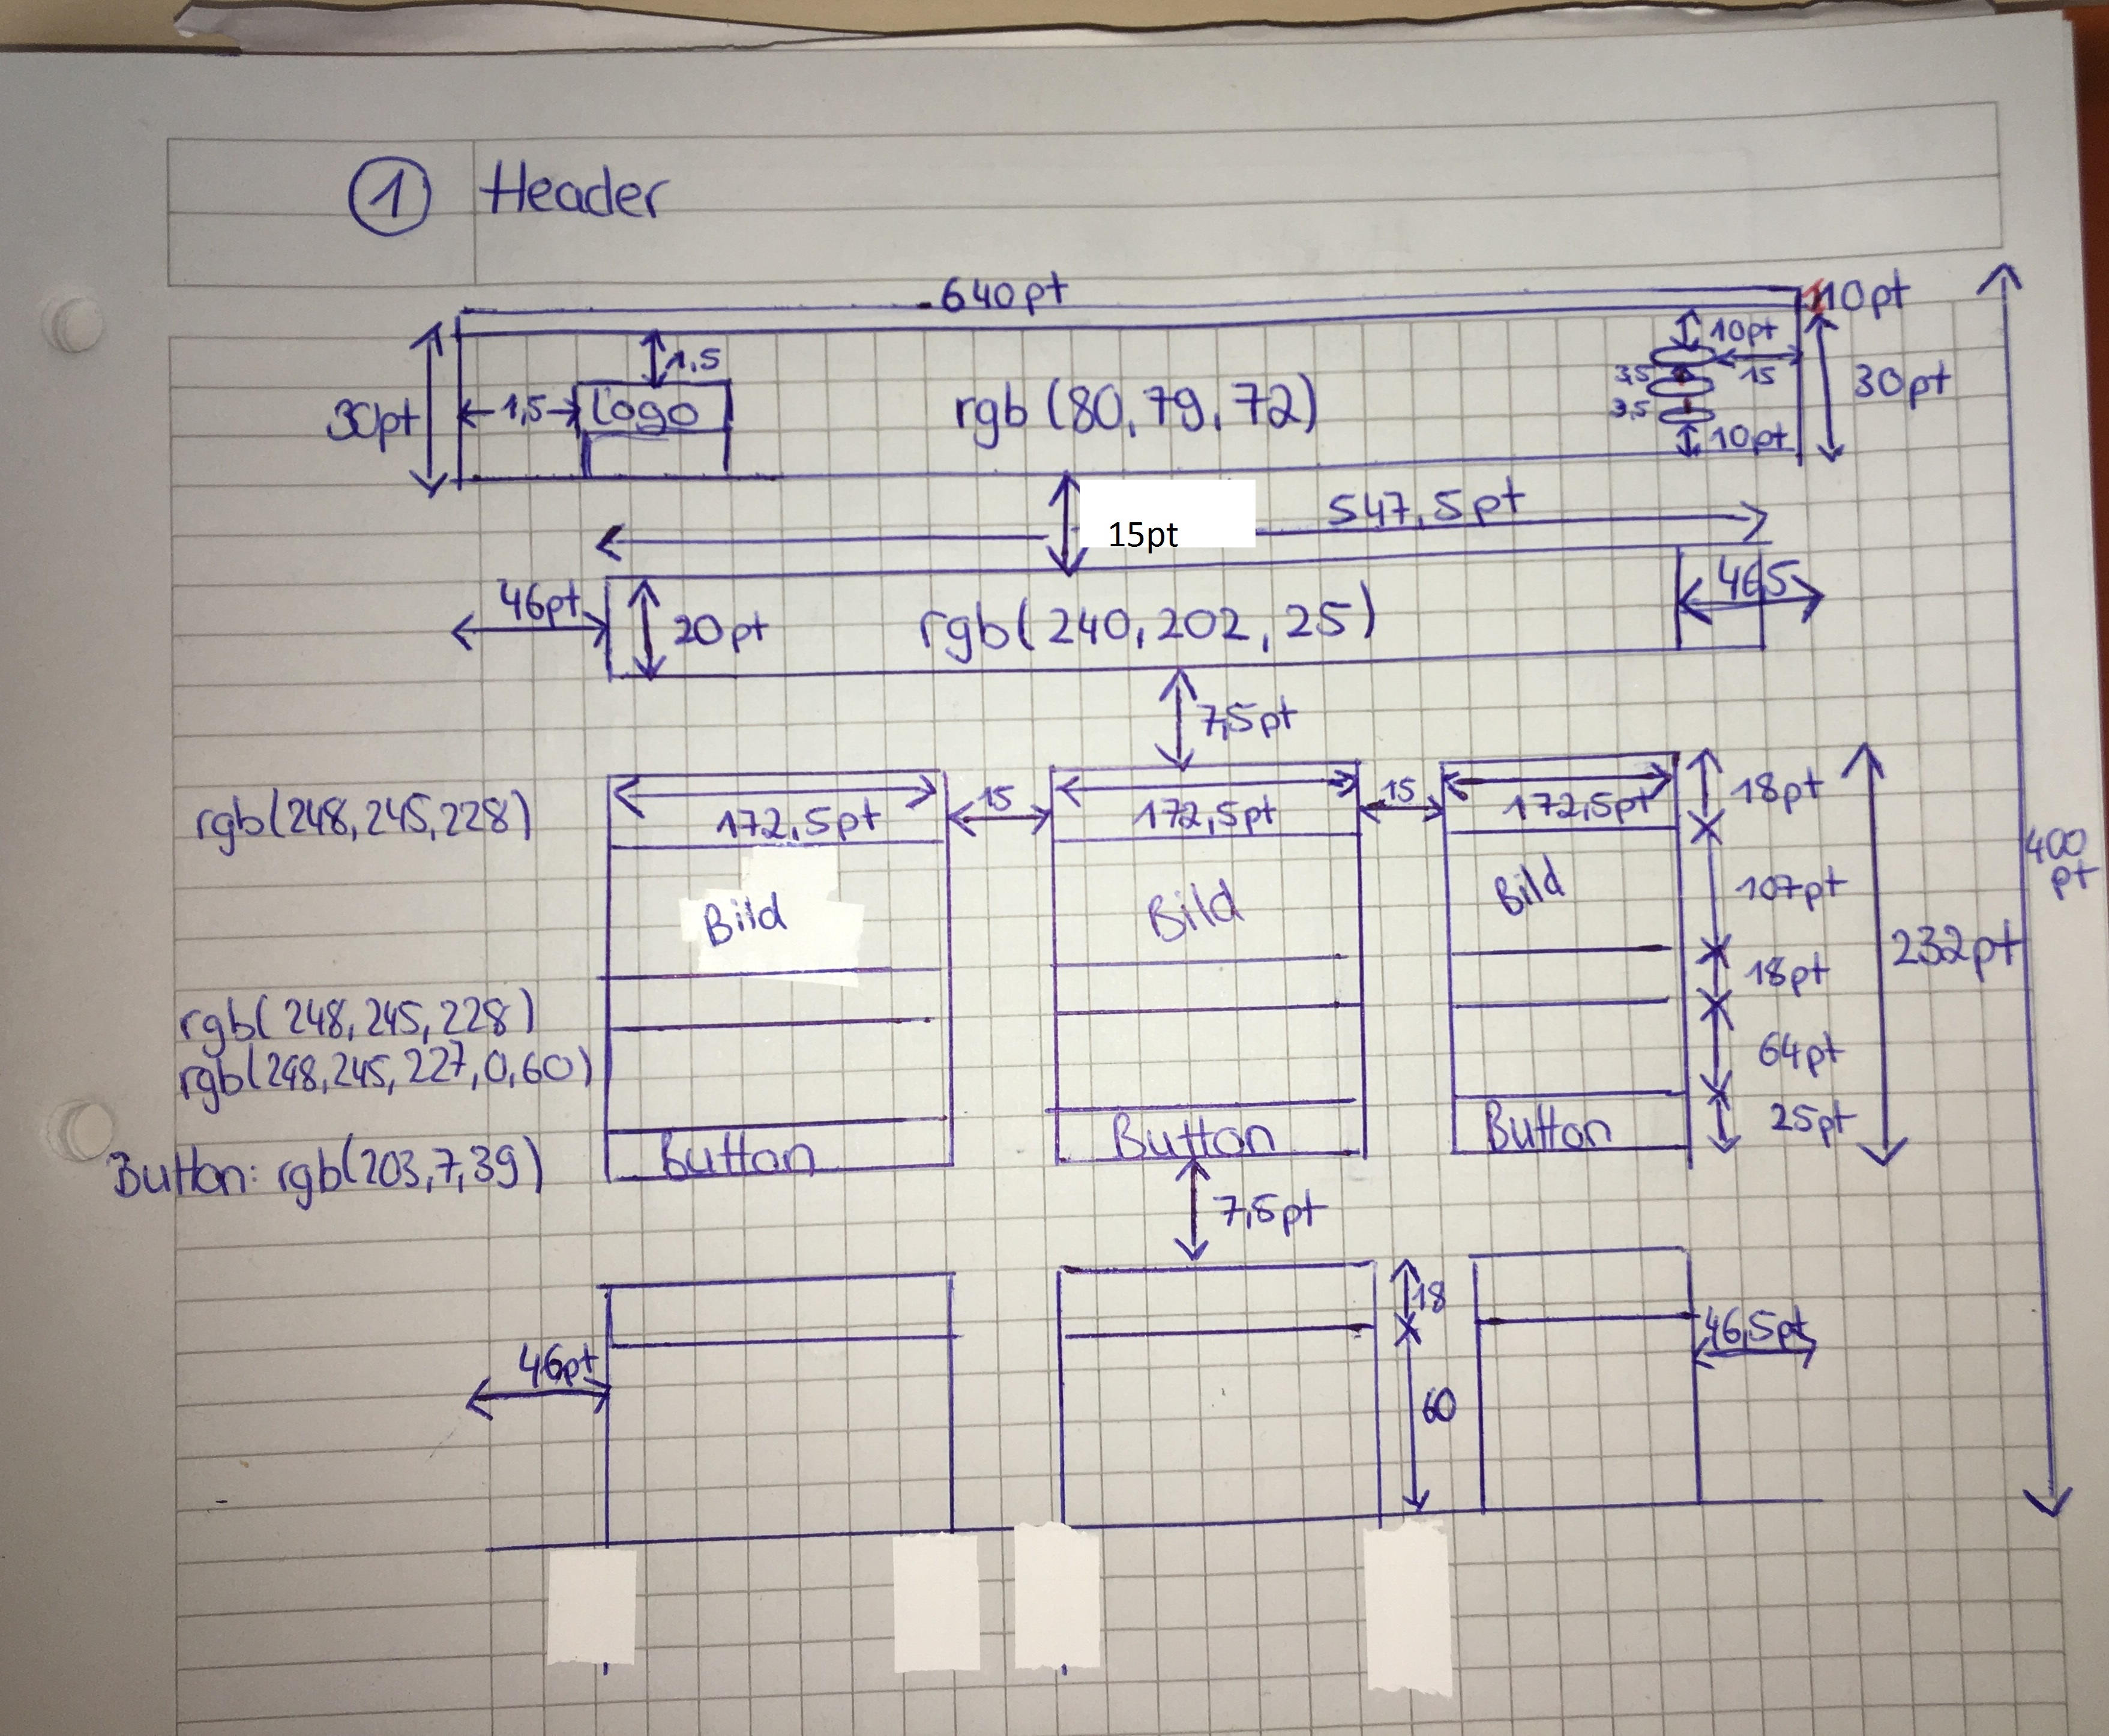 1 Header
640pt
10pt
30pt
1,5
1,5
Logo
rgb (80,79,72)
10pt
3,5
15
3,5
10pt
30pt
15pt
547,5pt
46pt
20pt
rgb(240,202,25)
46,5
7,5pt
rgb(248,245,228)
172,5pt
15
172,5pt
15
172,5pt
18pt
400
pt
Bild
Bild
Bild
107pt
232pt
18pt
rgb(248,245,228)
rgb(248,245,227,0,60)
64pt
Button: rgb(203,7,39)
Button
Button
Button
25pt
7,5pt
18
46pt
60
46,5pt